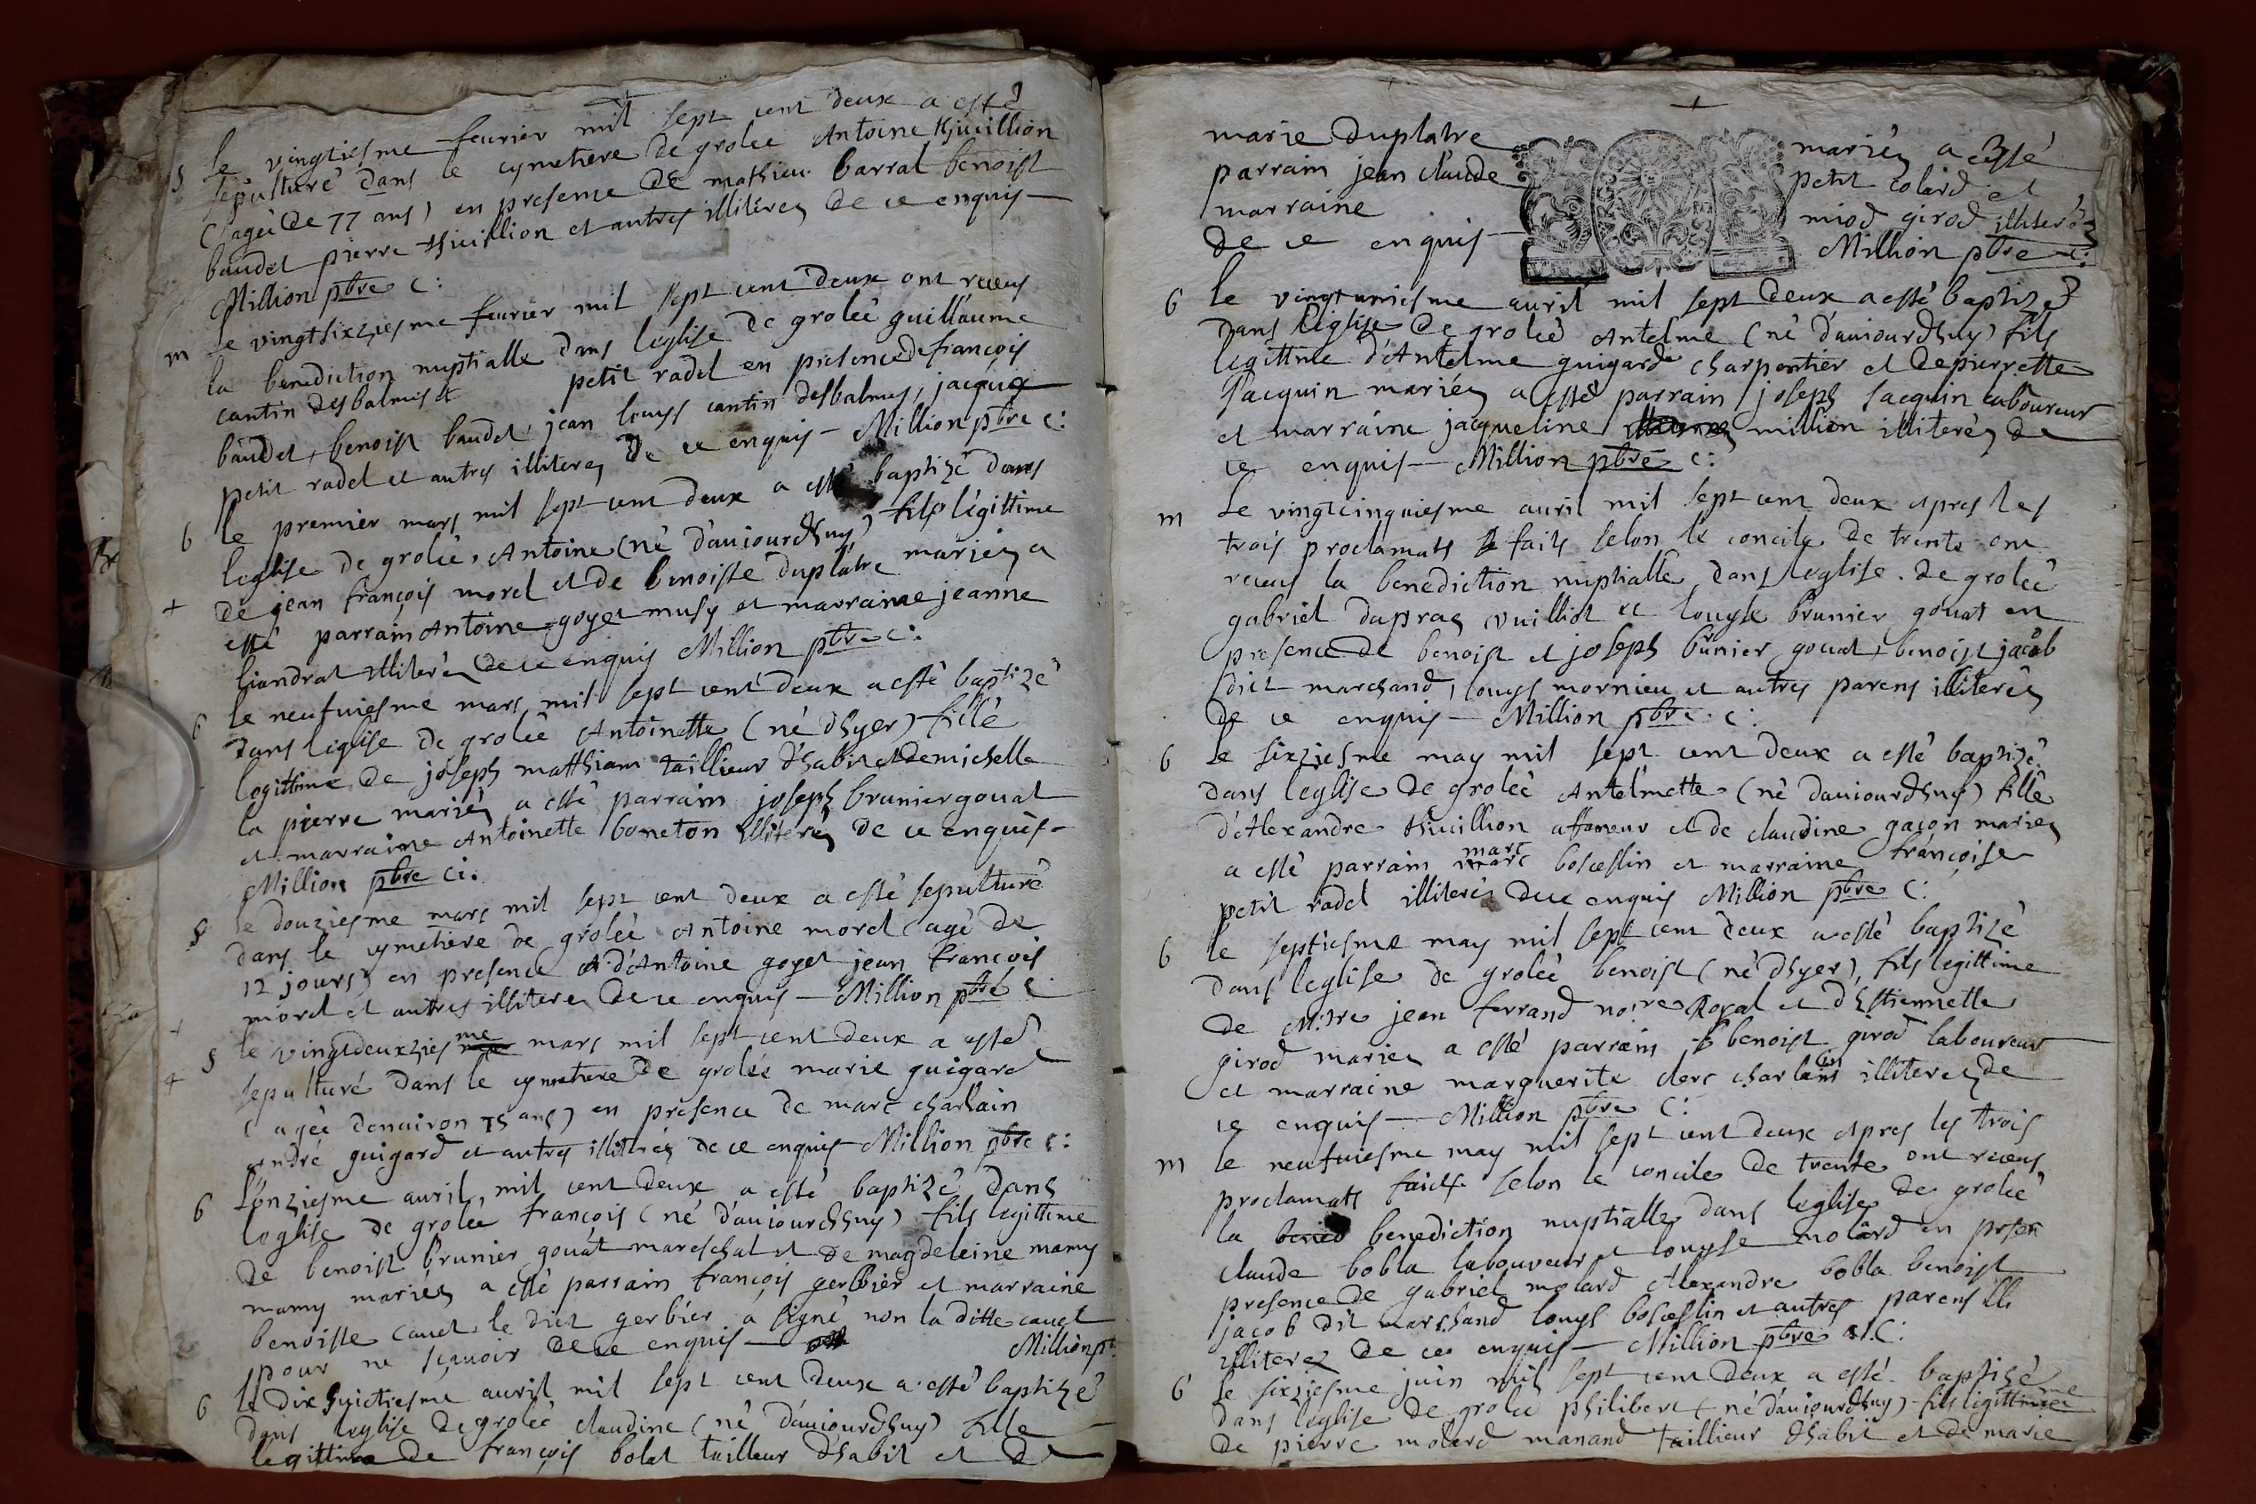 s le vingtiesme feurier mil sept cent deux a esté
sepulturé dans le cymetiere de grolee Antoine thjuillion
(agé de 77 ans) en presence de mathieu barral benoist
baudet pierre thiuillion et autres illiterez de ce enquis
Million pbre c:
m le vingtsixziesme feurier mil sept cent deux ont receus
la benediction nuptialle dans leglise de groleé guillaume
cantin desbalmes et petit radel en presence de françois
baudet, benoist baudet, jean louys cantin desbalmes, jacques
petit radel et autres illiterez de ce enquis — Million pbre c:
b le premier mars mil sept cent deux a esté baptizé dans
leglise de groleé, Antoine (né d'auiourdhuy) fils legittime
de jean françois morel et de benoiste duplâtre mariez a
+ esté parrain Antoine goyet musy et marraine jeanne
liandrat illiterez de ce enquis Million pbre c:
b le neufuiesme mars mil sept cent deux a esté baptizé
dans leglise de groleé Antoinette (né dhyer) fille
legittime de joseph matthiam taillieur dhabit et de michelle
la pierre mariez a esté parrain joseph brunier gouat
et marraine Antoinette boneton illiterez de ce enquis
Million pbre c:
s le douziesme mars mil sept cent deux a esté sepulturé
dans le cymetiere de groleé Antoine morel (agé de
12 jours) en presence d'Antoine goyet jean françois
morel et autres illiterez de ce enquis — Million pbre c
s le vingtdeuxziesme mars mil sept cent deux a esté
+ sepulturé dans le cymetiere de groleé marie guigard
(ageé denuiron 75 ans) en presence de marc charlain
andré guigard et autres illiterez de ce enquis Million pbre c:
b L'onziesme auril, mil cent deux a esté baptizé dans
leglise de groleé françois (né d'auiourdhuy) fils legittime
de benoist brunier gouat mareschal et de magdeleine mamy
mamy mariez a esté parrain françois gerbier et marraine
benoiste cauet, le dict gerbier a signé non la ditte cauet
pour ne sçauoir de ce enquis — Million pr
b le dix huictiesme auril mil sept cent deux a esté baptizé
dans leglise de groleé claudine (né d'auiourdhuy) fille
legittime de françois bolet tailleur dhabit et de
marie duplatre mariez a esté
parrain jean claude petit colard et
marraine miod girod illiterez
de ce enquis — Million pbre c:
b le vingtuniesme auril mil sept deux a esté baptizé
dans leglise de groleé Antelme (né d'auiourdhuy) fils
legittime d'Antelme guigard charpentier et de pierrette
jacquin mariez a esté parrain joseph jacquin laboureur
et marraine jacqueline million illiterez de
ce enquis — Million pbre c:
m Le vingtcinquiesme auril mil sept cent deux apres les
trois proclamats faits selon le concile de trente ont
receus la benediction nuptialle dans leglise de groleé
gabriel dupraz vuilliot et louyse brunier gouat en
presence de benoist et joseph brunier gouat, benoist jacob
dict marchand, louys mornieu et autres parens illiterez
de ce enquis — Million pbre c:
b le sixziesme may mil sept cent deux a esté baptizé
dans leglise de groleé Antelmette (né dauiourdhuy) fille
d'Alexandre thiuillion affaneur et de claudine gaçon mariez
a esté parrain marc boscesslin et marraine françoise
petit radel illiterez de ce enquis Million pbre c:
b le septiesme may mil sept cent deux a esté baptizé
dans leglise de groleé benoist (né dhyer), fils legittime
de Mitre jean ferrand noire Royal et d'Estiennette
girod mariez a esté parrain benoist girod laboureur
et marraine marguerite clerc charlain illiterez de
ce enquis — Million pbre c:
m le neufuiesme may mil sept cent deux apres les trois
proclamats faicts selon le concile de trente ont receus
la benediction nuptialle dans leglise de groleé
claude bobla laboureur et louyse molard en presen
presence de gabriel molard Alexandre bobla benoist
jacob dit marchand louys boscesslin et autres parens illi
illiterez de ce enquis — Million pbre c:
b le sixziesme juin mil sept cent deux a esté baptizé
dans leglise de groleé philibert (né dauiourdhuy) fils legittime
de pierre molard manand taillieur dhabit et de marie